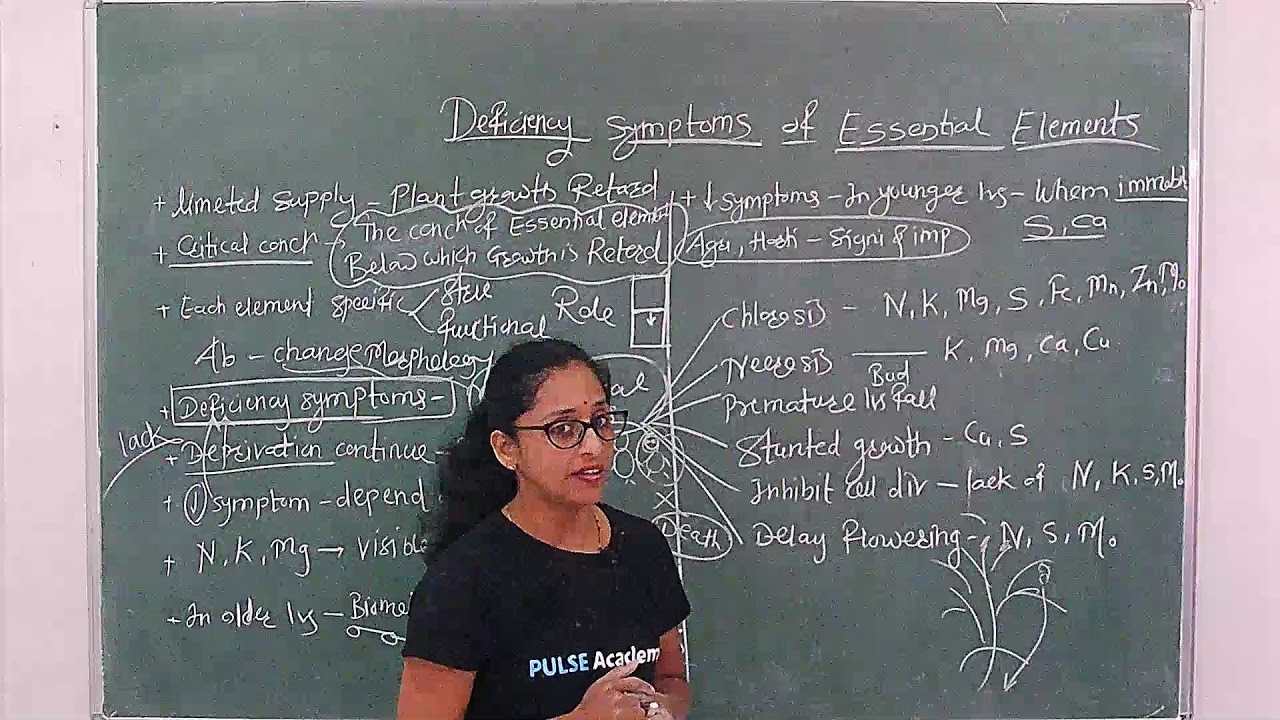 Deficiency Symptoms of Essential Elements
+ Limeted Supply - Plant growth Retard
+ Critical conc n - The conc n of Essential element
Below which Growth is Retard
+ Each element specific Stru
functional
Role
Ab - change Morphology
+ Deficiency symptoms -
lack
+ Deprivation continue -
+ ↓ symptom - depend
+ N, K, Mg → visible
+ In older lvs - Biome
Death
+ ↓ symptoms - In younger lvs - When immobl
S, Ca
Agri, Horti - Signi & imp
Chlorosis - N, K, Mg, S, Fe, Mn, Zn, Mo
Necrosis K, Mg, Ca, Cu
Bud
Premature lvs fall
Stunted growth - Ca, S
Inhibit cell div - lack of N, K, S, Mo
Delay flowering - N, S, Mo
PULSE Academ